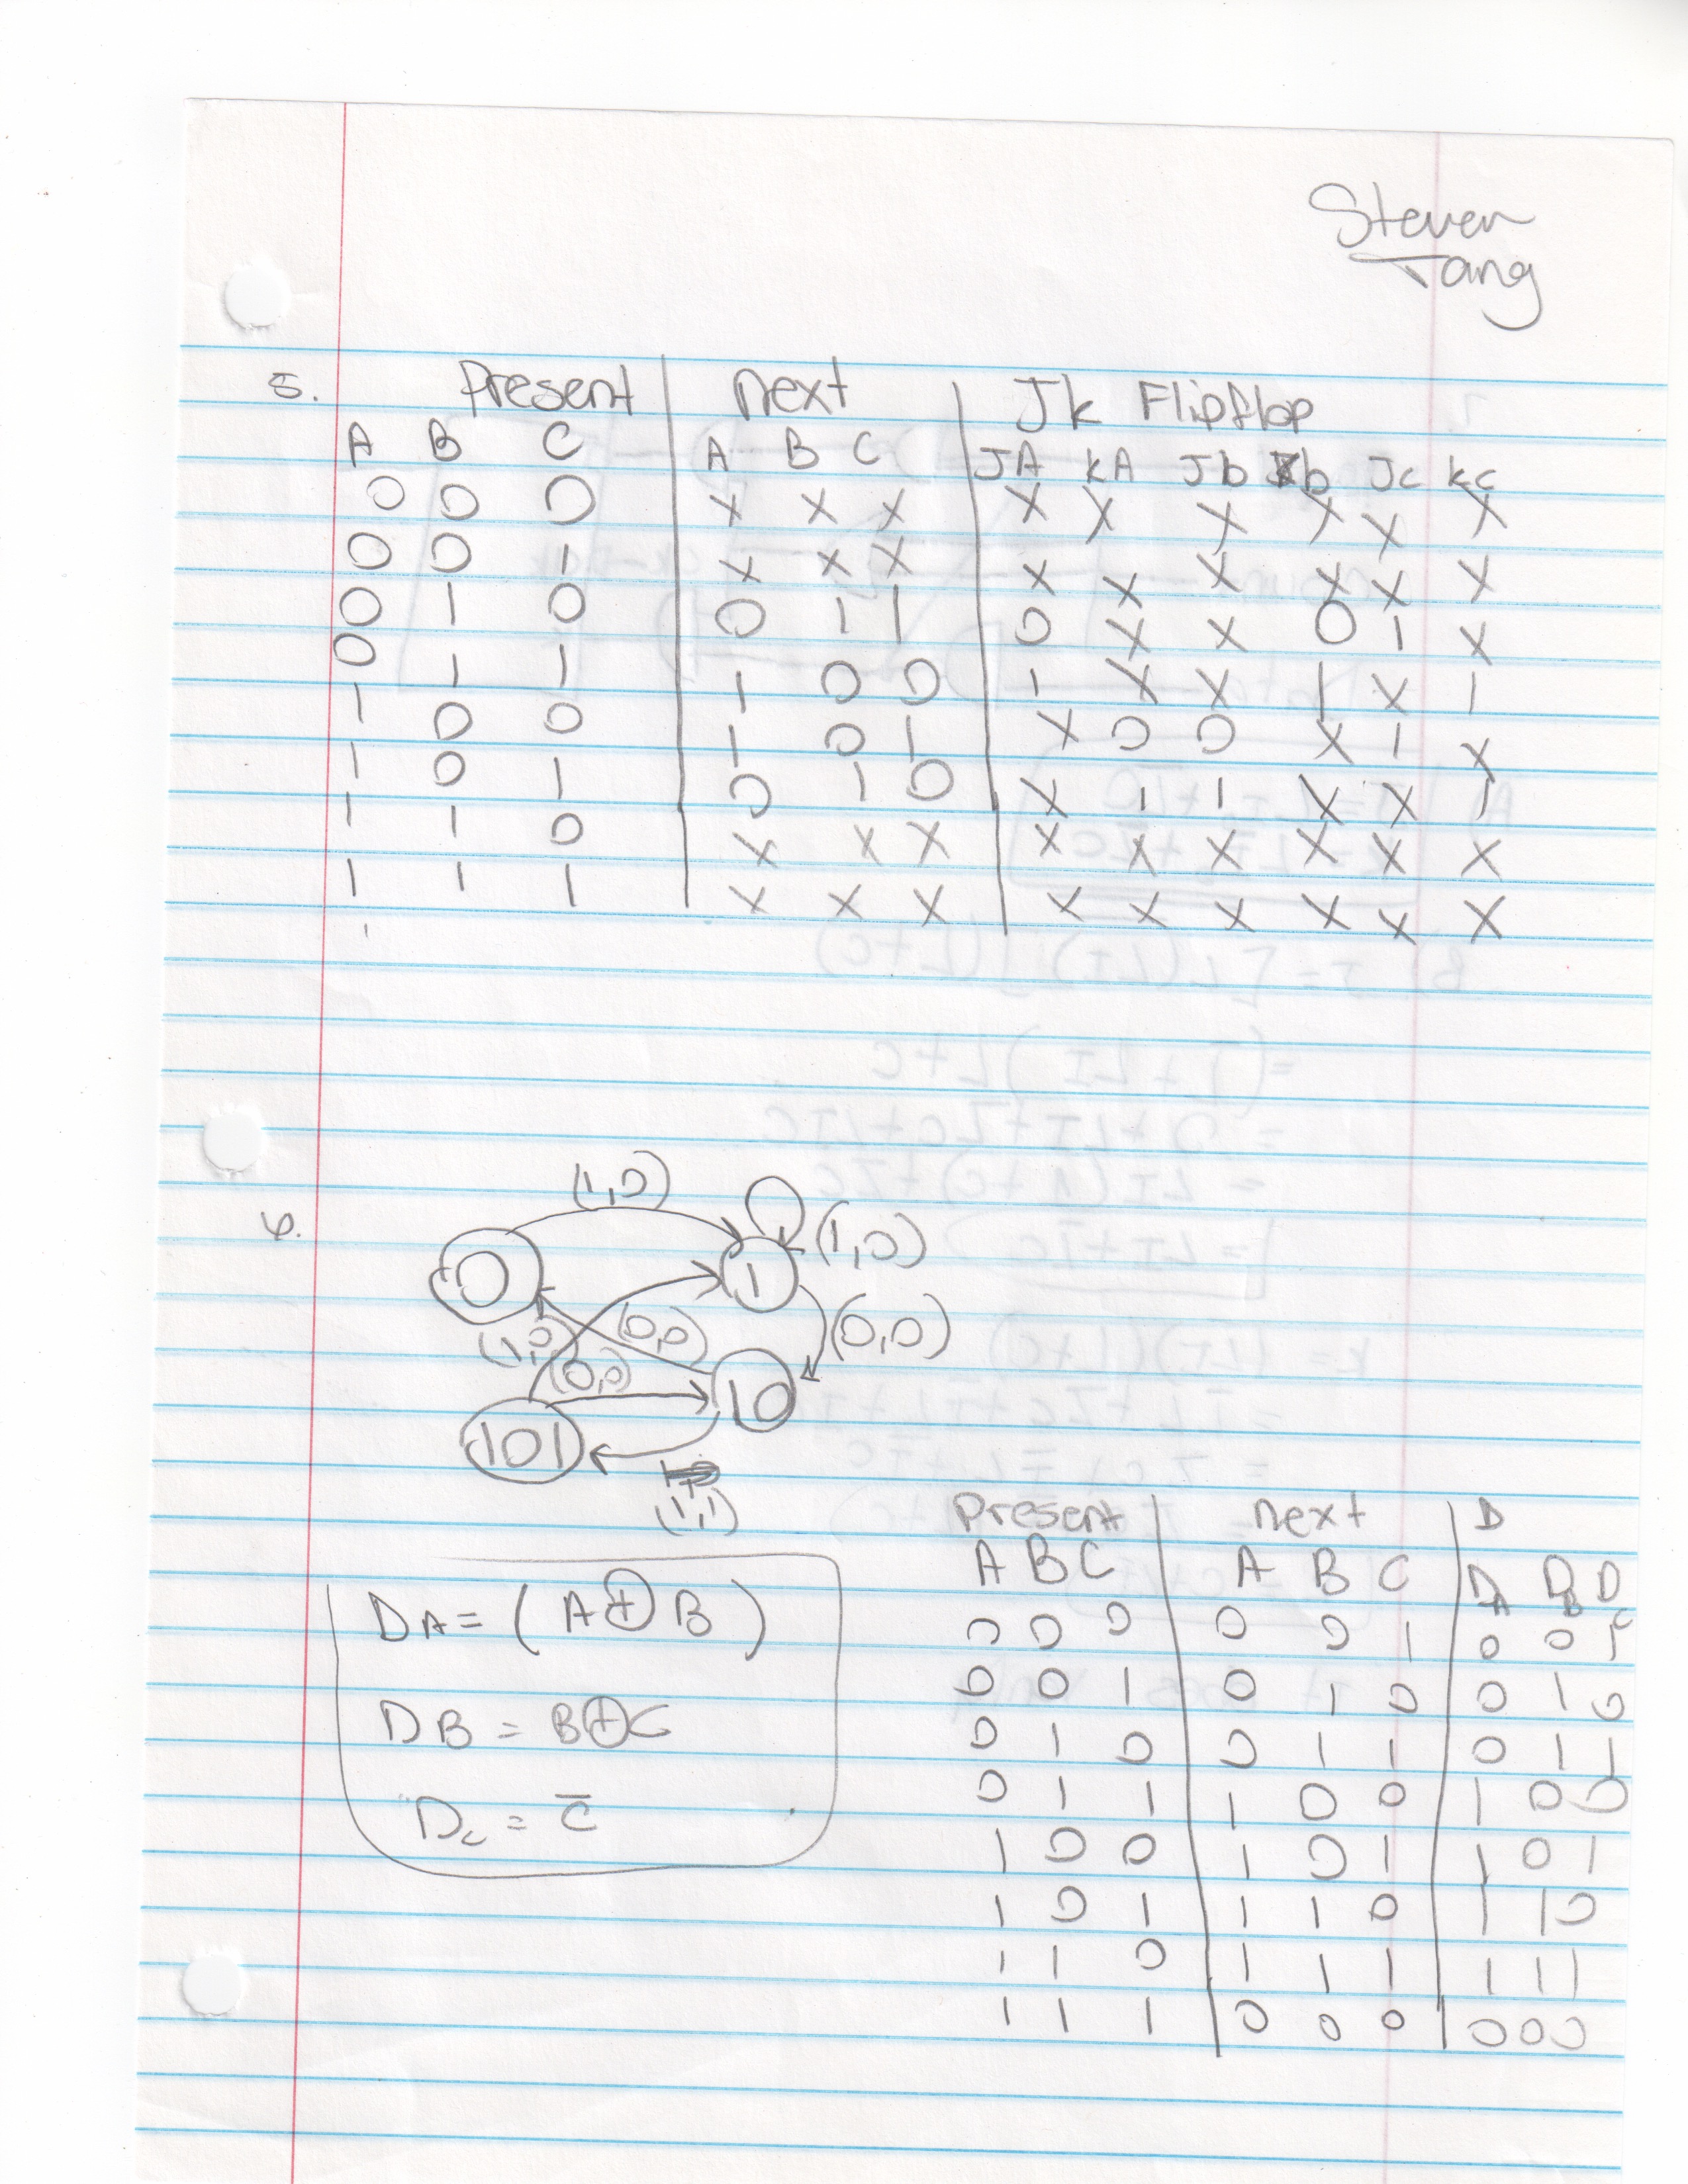 Steven
Tang
5. Present next Jk Flipflop
A B C A B C JA kA Jb kb Jc kc
0 0 0 X X X X X X X X X
0 0 1 X X X X X X X X X
0 1 0 0 1 1 0 X X 0 1 X
0 1 1 1 0 0 1 X X 1 X 1
1 0 0 1 0 1 X 0 0 X 1 X
1 0 1 0 1 0 X 1 1 X X 1
1 1 0 X X X X X X X X X
1 1 1 X X X X X X X X X
6.
(1,0)
0 1 (1,0)
(1,0) (0,0) (0,0)
(0,0)
10
101
(1,1)
DA = (A ⊕ B)
DB = B⊕C
Dc = C̅
Present next D
A B C A B C DA DB DC
0 0 0 0 0 1 0 0 1
0 0 1 0 1 0 0 1 0
0 1 0 0 1 1 0 1 1
0 1 1 1 0 0 1 0 0
1 0 0 1 0 1 1 0 1
1 0 1 1 1 0 1 1 0
1 1 0 1 1 1 1 1 1
1 1 1 0 0 0 0 0 0